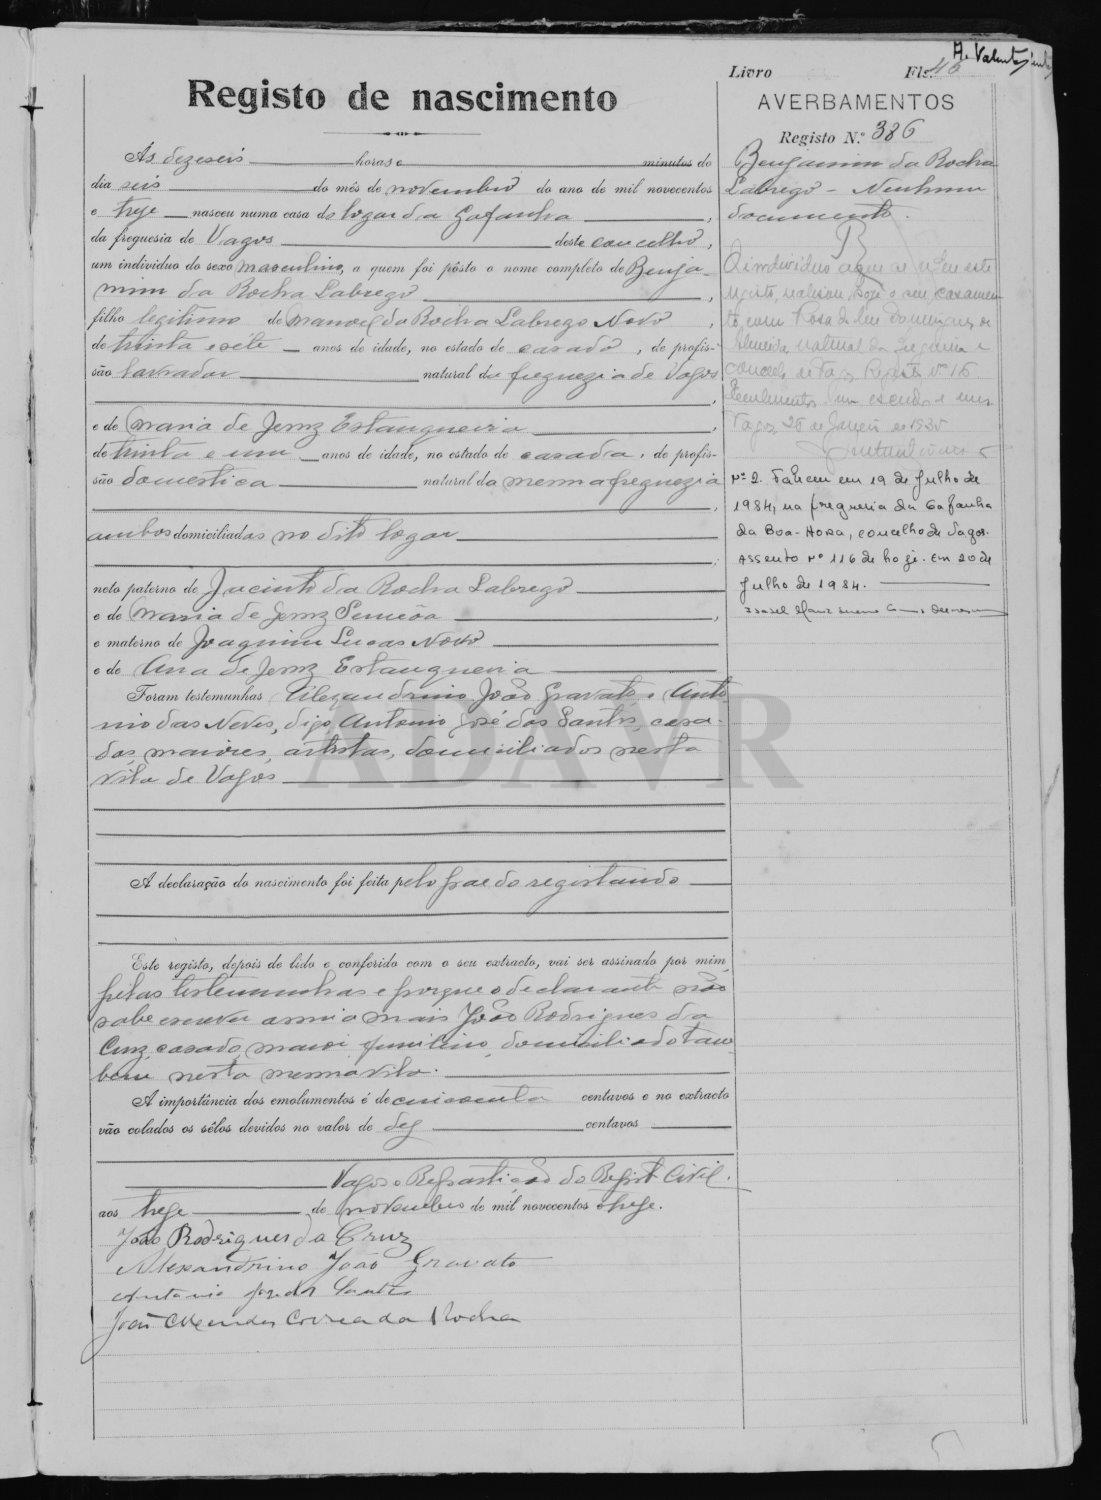 Livro Fls. 46
Registo de nascimento
Às dezeseis horas e minutos do
dia seis do mês de novembro do ano de mil novecentos
e treze nasceu numa casa do logar da Gafanha ,
da freguesia de Vagos deste concelho,
um individuo do sexo masculino, a quem foi pôsto o nome completo de Benja-
mim da Rocha Labrego ,
filho legitimo de Manoel da Rocha Labrego Novo ,
de trinta e sete anos de idade, no estado de casado , de profis-
são lavrador natural da freguezia de Vagos
,
e de Maria de Jesuz Estangueira ,
de trinta e um anos de idade, no estado de casada , de profis-
são domestica natural da mesma freguezia
,
ambos domiciliadas no dito logar
;
neto paterno de Jacinto da Rocha Labrego
e de Maria de Jesuz ,
e materno de Joaquim Lucas Novo
e de Ana de Jesuz Estangueira
Foram testemunhas Alexandrino João Gravato e Anto-
nio das Neves, digo, Antonio José dos Santos, casa-
dos, maiores, artistas, domiciliados nesta
vila de Vagos
ADAVR
A declaração do nascimento foi feita pelo pae do registando
Este registo, depois de lido e conferido com o seu extracto, vai ser assinado por mim,
pelas testemunhas e porque o declarante não
sabe escrever assina mais João Rodrigues da
Cruz, casado, maior, funileiro, domiciliado tam-
bem nesta mesma vila.
A importância dos emolumentos é de cincoenta centavos e no extracto
vão colados os sêlos devidos no valor de dez centavos
Vagos e Repartição do Registo Civil.
aos treze de novembro de mil novecentos e treze.
João Rodrigues da Cruz
Alexandrino João Gravato
Antonio José dos Santos
João Mendes Correa da Rocha
AVERBAMENTOS
Registo N.º 386
Benjamim da Rocha
Labrego - Nenhum
documento.
O individuo a que se refere este
registo, realisou hoje o seu casamen-
to, com Rosa de Domingues de
Almeida, natural da freguezia e
concelho de Vagos Registo nº 16
Emolumentos um escudo e
Vagos, 26 de Janeiro de 1935
Nº 2. Faleceu em 19 de Julho de
1984, na freguesia da Gafanha
da Boa-Hora, concelho de Vagos.
Assento nº 116 de hoje. Em 20 de
Julho de 1984.